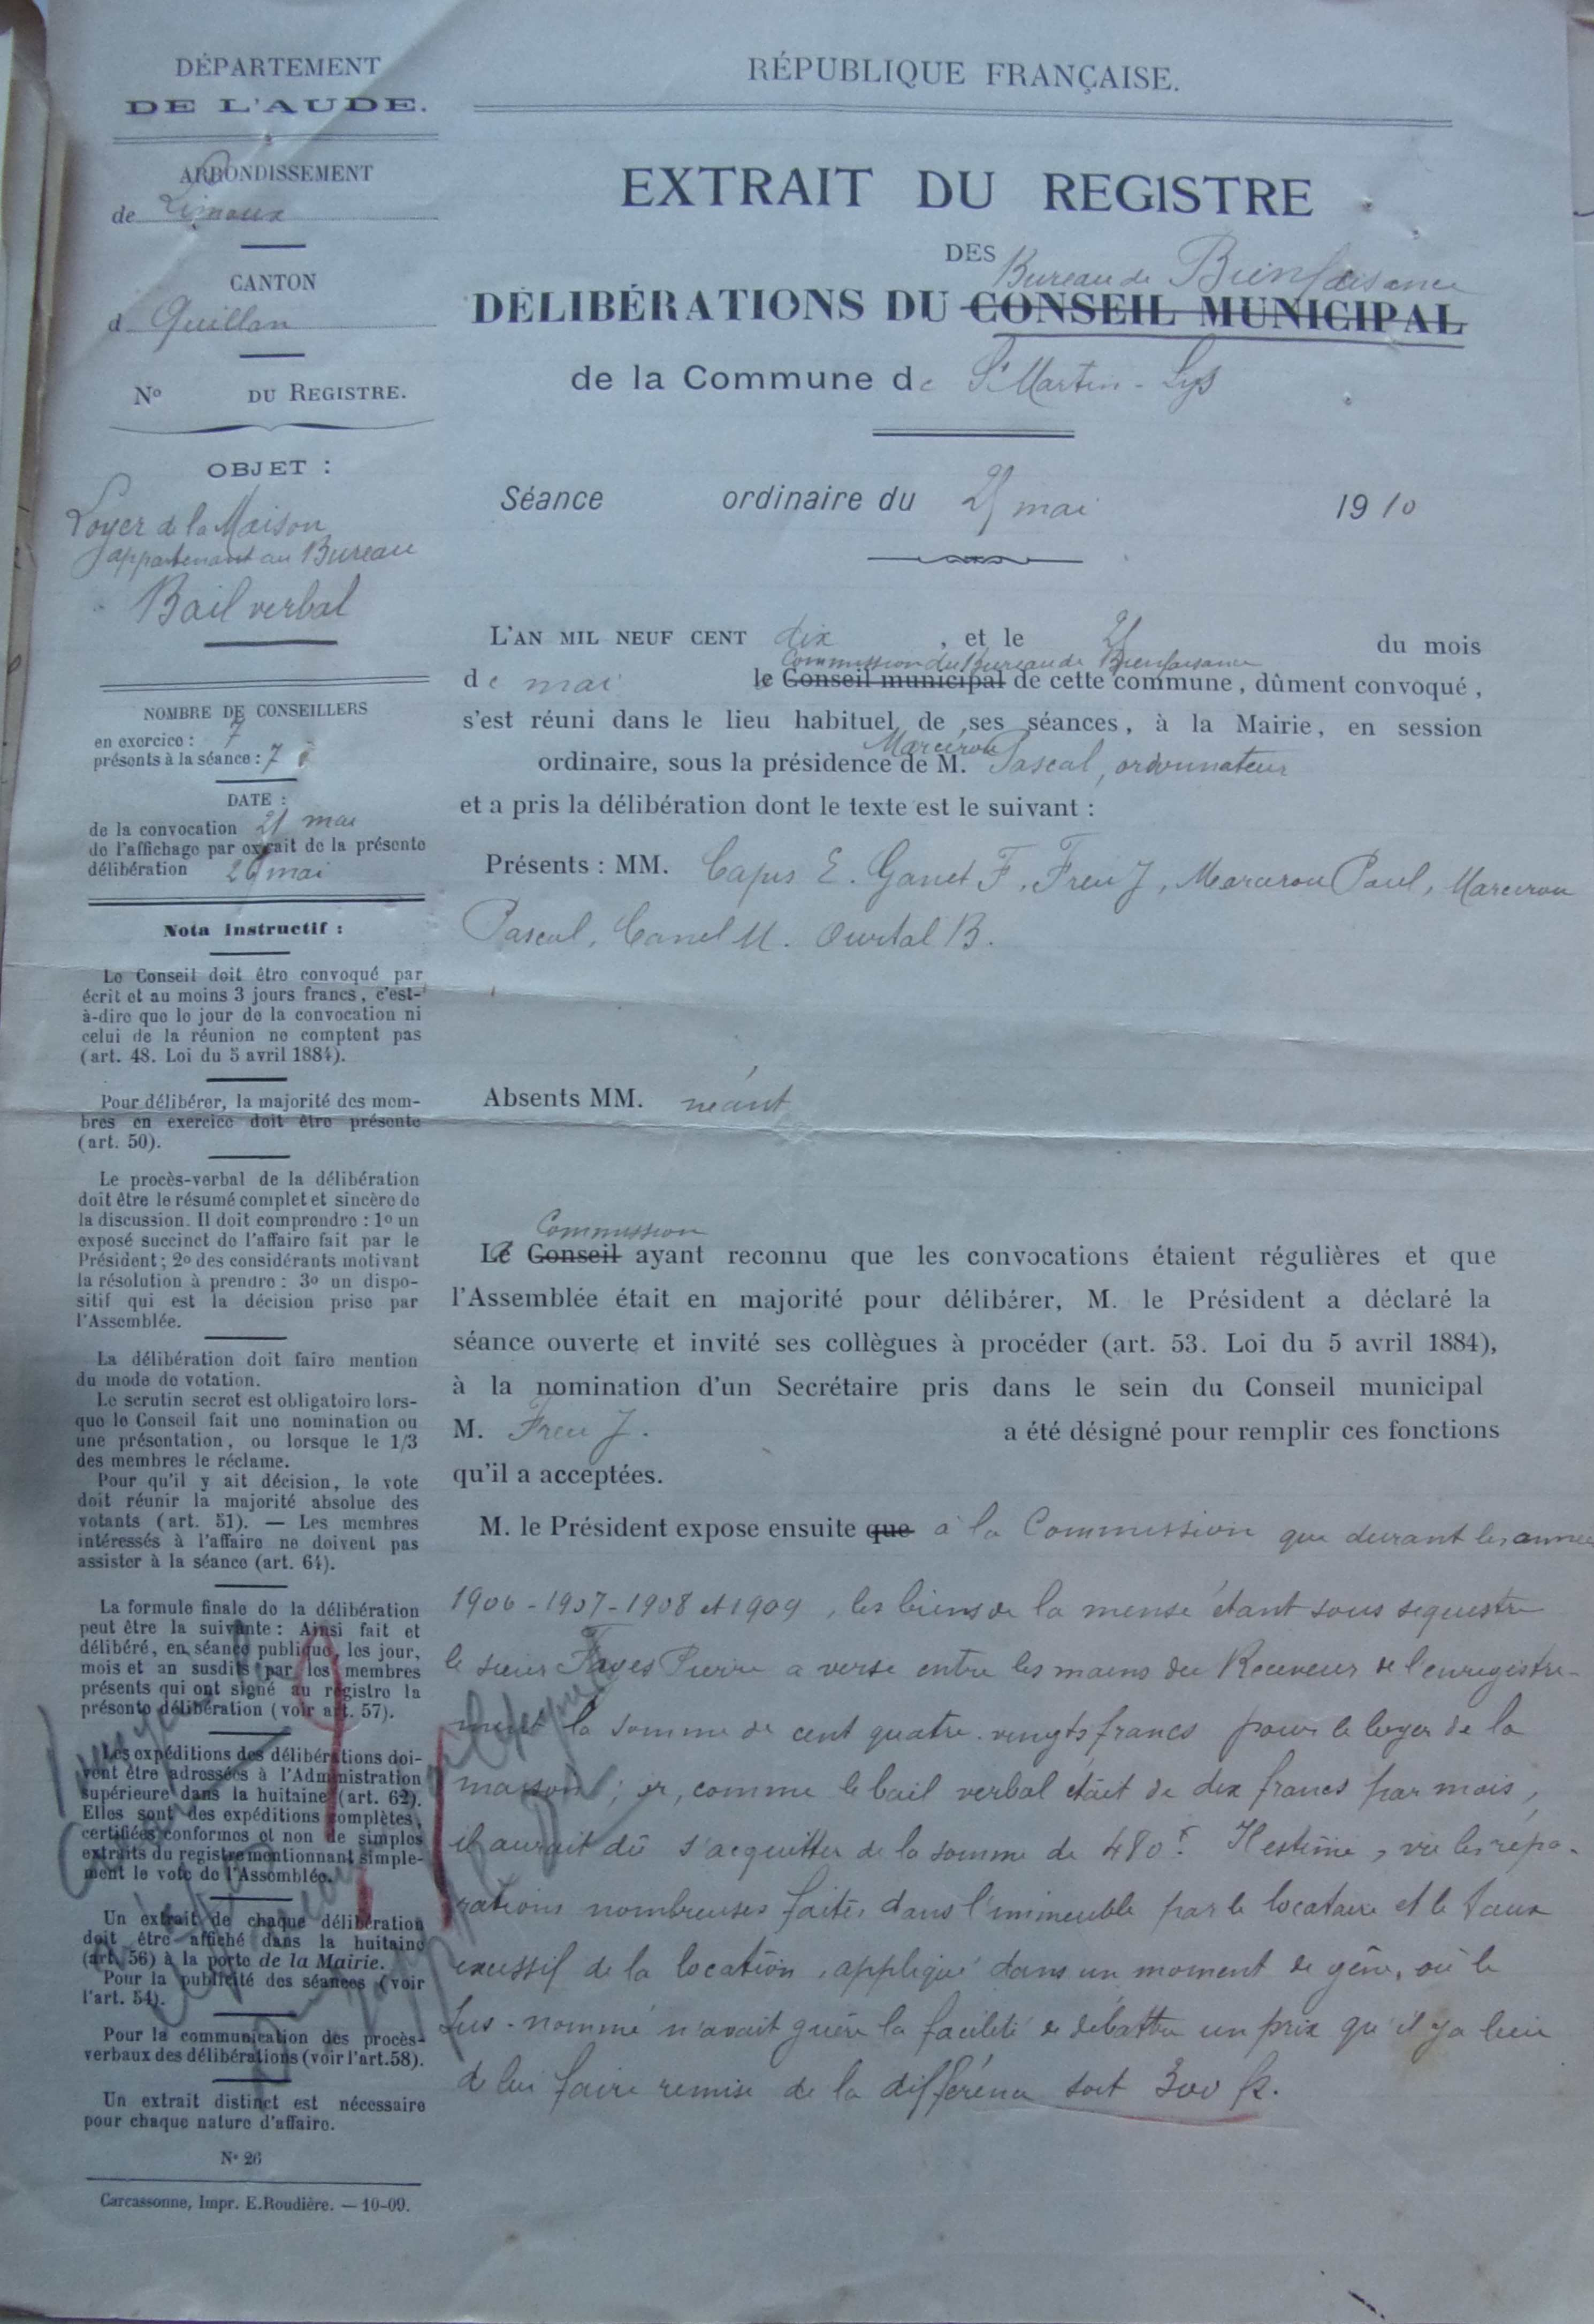 DÉPARTEMENT
DE L'AUDE.
ARRONDISSEMENT
de Limoux
CANTON
d Quillan
No DU REGISTRE.
OBJET :
Loyer de la Maison
appartenant au Bureau
Bail verbal
NOMBRE DE CONSEILLERS
en exercice : 7
présents à la séance : 7
DATE :
de la convocation 21 mai
de l'affichage par extrait de la présente
délibération 26 mai
Nota Instructif :
Le Conseil doit être convoqué par
écrit et au moins 3 jours francs, c'est-
à-dire que le jour de la convocation ni
celui de la réunion ne comptent pas
(art. 48. Loi du 5 avril 1884).
Pour délibérer, la majorité des mem-
bres en exercice doit être présente
(art. 50).
Le procès-verbal de la délibération
doit être le résumé complet et sincère de
la discussion. Il doit comprendre : 1o un
exposé succinct de l'affaire fait par le
Président ; 2o des considérants motivant
la résolution à prendre : 3o un dispo-
sitif qui est la décision prise par
l'Assemblée.
La délibération doit faire mention
du mode de votation.
Le scrutin secret est obligatoire lors-
que le Conseil fait une nomination ou
une présentation, ou lorsque le 1/3
des membres le réclame.
Pour qu'il y ait décision, le vote
doit réunir la majorité absolue des
votants (art. 51). — Les membres
intéressés à l'affaire ne doivent pas
assister à la séance (art. 64).
La formule finale de la délibération
peut être la suivante : Ainsi fait et
délibéré, en séance publique, les jour,
mois et an susdits par les membres
présents qui ont signé au registre la
présente délibération (voir art. 57).
Les expéditions des délibérations doi-
vent être adressées à l'Administration
supérieure dans la huitaine (art. 62).
Elles sont des expéditions complètes,
certifiées conformes et non de simples
extraits du registre mentionnant simple-
ment le vote de l'Assemblée.
Un extrait de chaque délibération
doit être affiché dans la huitaine
(art. 56) à la porte de la Mairie.
Pour la publicité des séances (voir
l'art. 54).
Pour la communication des procès-
verbaux des délibérations (voir l'art. 58).
Un extrait distinct est nécessaire
pour chaque nature d'affaire.
No 26
Carcassonne, Impr. E. Roudière. — 10-09.
RÉPUBLIQUE FRANÇAISE.
EXTRAIT DU REGISTRE
DES
Bureau de Bienfaisance
DÉLIBÉRATIONS DU CONSEIL MUNICIPAL
de la Commune de St Martin-Lys
Séance ordinaire du mai 1910
L'AN MIL NEUF CENT dix , et le du mois
Commission du Bureau de Bienfaisance
de mai le Conseil municipal de cette commune, dûment convoqué,
s'est réuni dans le lieu habituel de ses séances, à la Mairie, en session
Marcerou
ordinaire, sous la présidence de M. Pascal, ordonnateur
et a pris la délibération dont le texte est le suivant :
Présents : MM. Capus E. Ganet F, Freu J, Marcerou Paul, Marcerou
Pascal, Canel M. Ourtal B.
Absents MM. néant
Commission
Le Conseil ayant reconnu que les convocations étaient régulières et que
l'Assemblée était en majorité pour délibérer, M. le Président a déclaré la
séance ouverte et invité ses collègues à procéder (art. 53. Loi du 5 avril 1884),
à la nomination d'un Secrétaire pris dans le sein du Conseil municipal
M. Freu J. a été désigné pour remplir ces fonctions
qu'il a acceptées.
M. le Président expose ensuite que à la Commission que durant les années
1906-1907-1908 et 1909, les biens de la mense étant sous sequestre
le sieur Pierre a versé entre les mains du Receveur de l'enregistre-
ment la somme de cent quatre-vingts francs pour le loyer de la
maison ; or, comme le bail verbal était de dix francs par mois,
il aurait dû s'acquitter de la somme de 480f. Il estime, vu les répa-
rations nombreuses faites dans l'immeuble par le locataire et le taux
excessif de la location, appliqué dans un moment de gêne, où le
sus-nommé n'avait guère la facilité de débattre un prix qu'il y a lieu
de lui faire remise de la différence soit 300 fr.